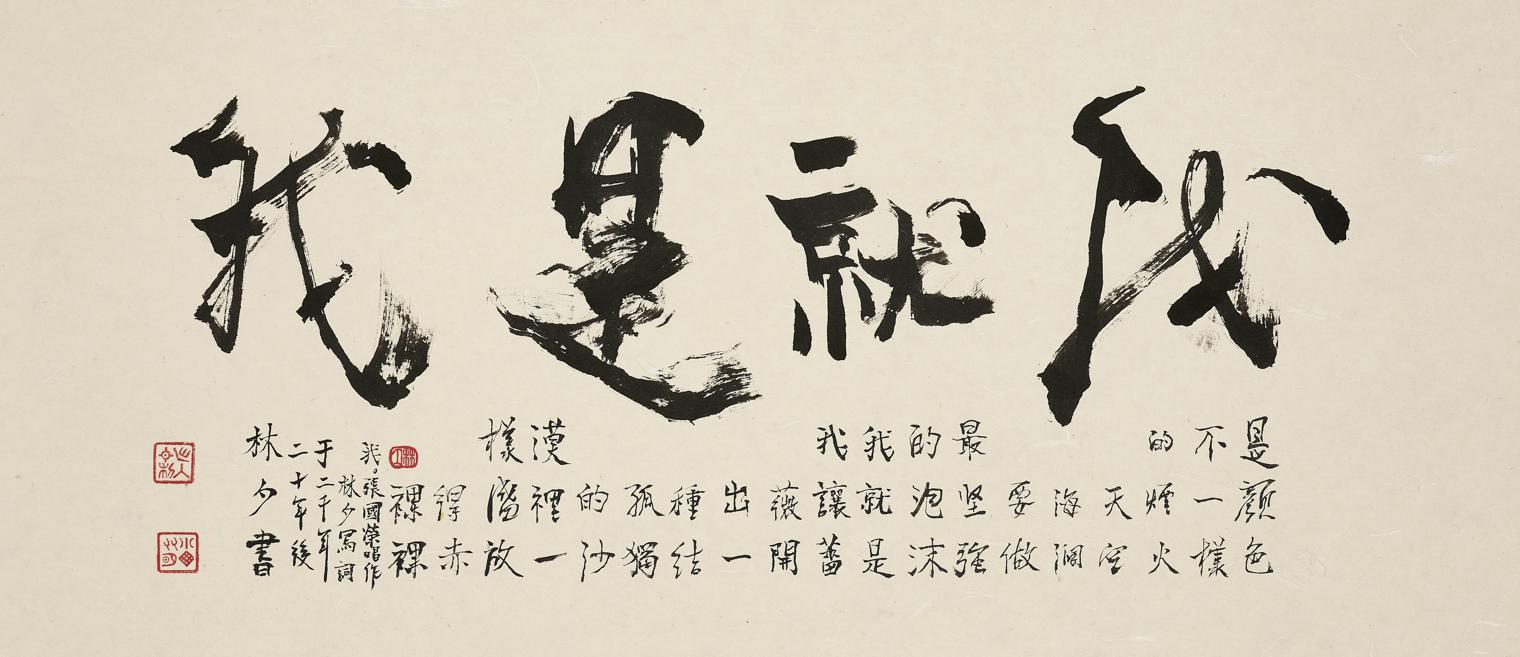 我就是我
是顏色
不一樣
的煙火
天空
海闊
要做
最坚強
的泡沫
我就是
我讓薔
薇開
出一
種結
孤獨
的沙
漠裡一
樣盛放
得赤
裸裸
我。張國榮唱作
林夕寫詞
于二千年
二十年後
林夕書